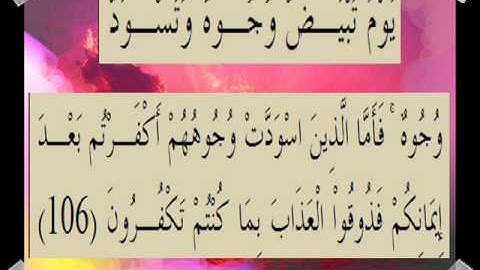 يَوْمَ تَبْيَضُّ وُجُوهٌ وَتَسْوَدُّ
وُجُوهٌ ۚ فَأَمَّا الَّذِينَ اسْوَدَّتْ وُجُوهُهُمْ أَكْفَرْتُم بَعْدَ
إِيمَانِكُمْ فَذُوقُواْ الْعَذَابَ بِمَا كُنْتُمْ تَكْفُرُونَ (106)